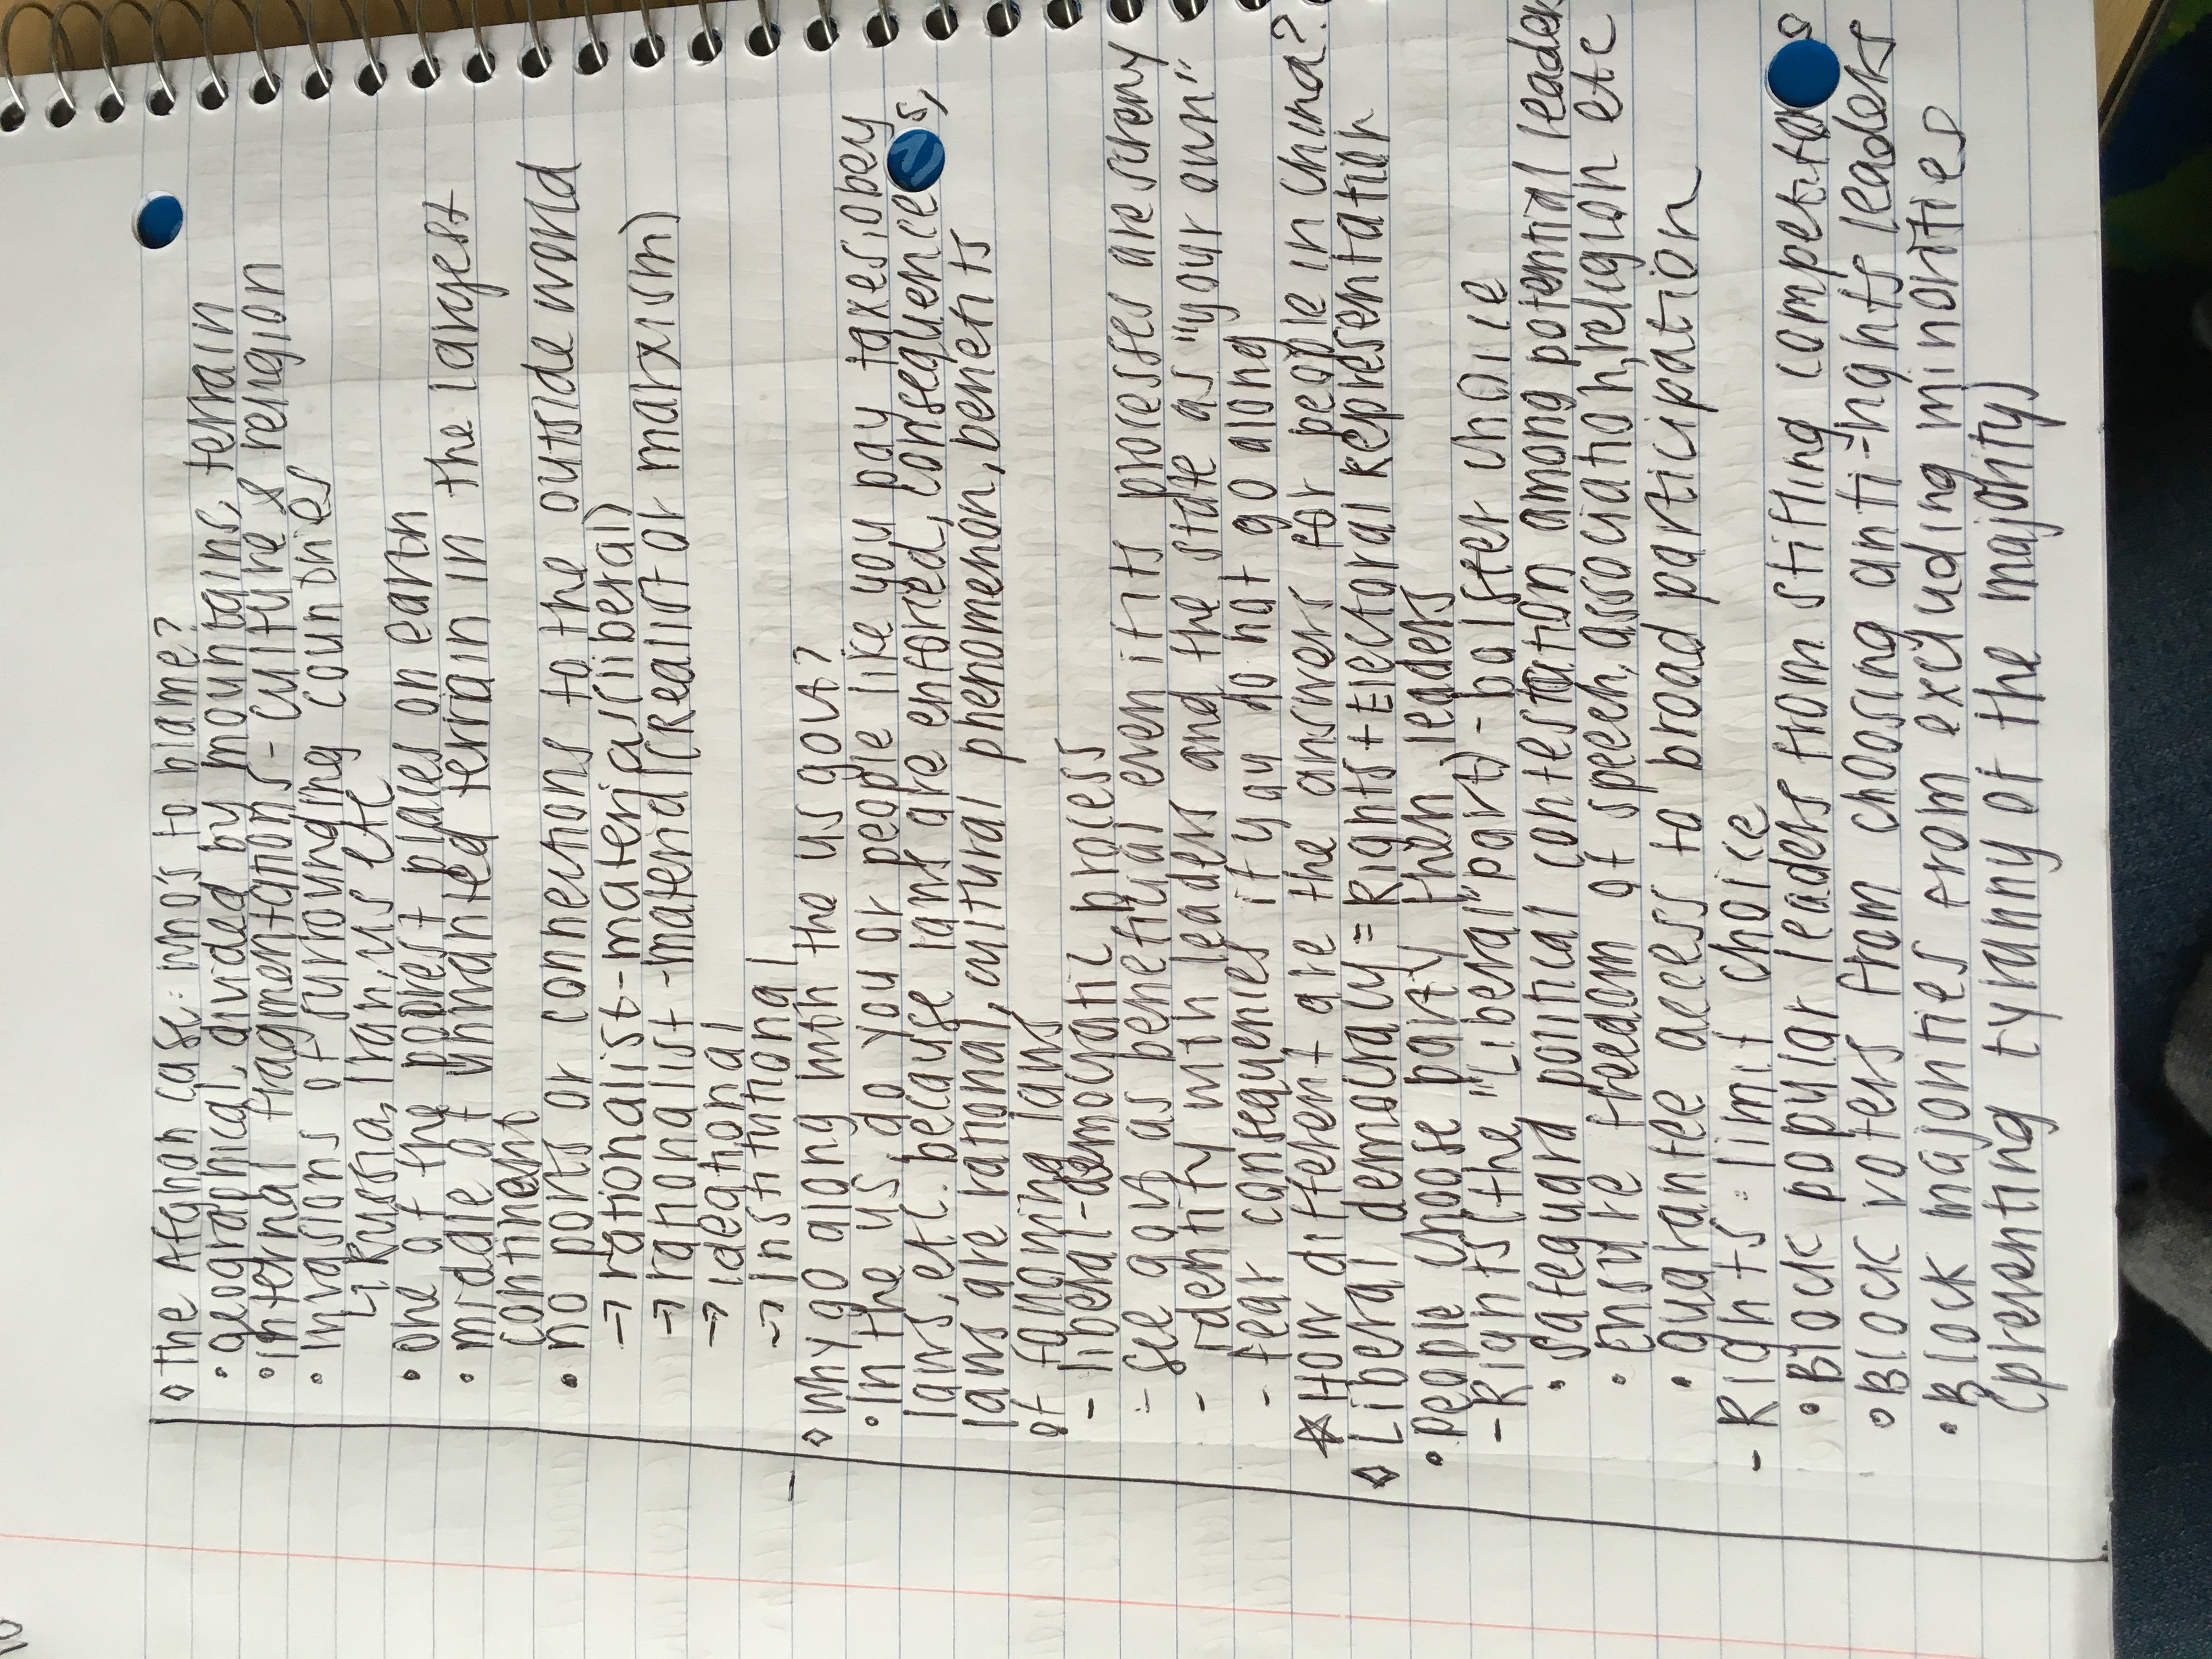 ◇ the Afghan case: who's to blame?
• geographical, divided by mountains, terrain
• internal fragmentations - culture & religion
• invasions of surrounding countries
↳ Russia, Iran, US etc
• one of the poorest places on earth
• middle of unwanted terrain in the largest
continent
• no ports or connections to the outside world
→ rationalist - materialist (liberal)
→ rationalist - material (Realist or marxism)
→ ideational
→ institutional
◇ why go along with the US govt?
• In the US, do you or people like you pay taxes, obey
laws, etc. because laws are enforced, consequences,
laws are rational, cultural phenomenon, benefits
of following laws
- liberal-democratic process
- see gov as beneficial even if its processes are
- identify with leaders and the state as "your own"
- fear consequences if you do not go along
☆ How different are the answers for people in China?
◇ Liberal democracy = Rights + Electoral Representation
• people choose party, then leaders
- Rights (the "Liberal" part) - bolster choice
• safeguard political contestation among potential leaders
• ensure freedom of speech, association, religion etc
• guarantee access to broad participation
- Rights: limit choice
• Block popular leaders from stifling competitors
• Block voters from choosing anti-rights leaders
• Block majorities from excluding minorities
(preventing tyranny of the majority)